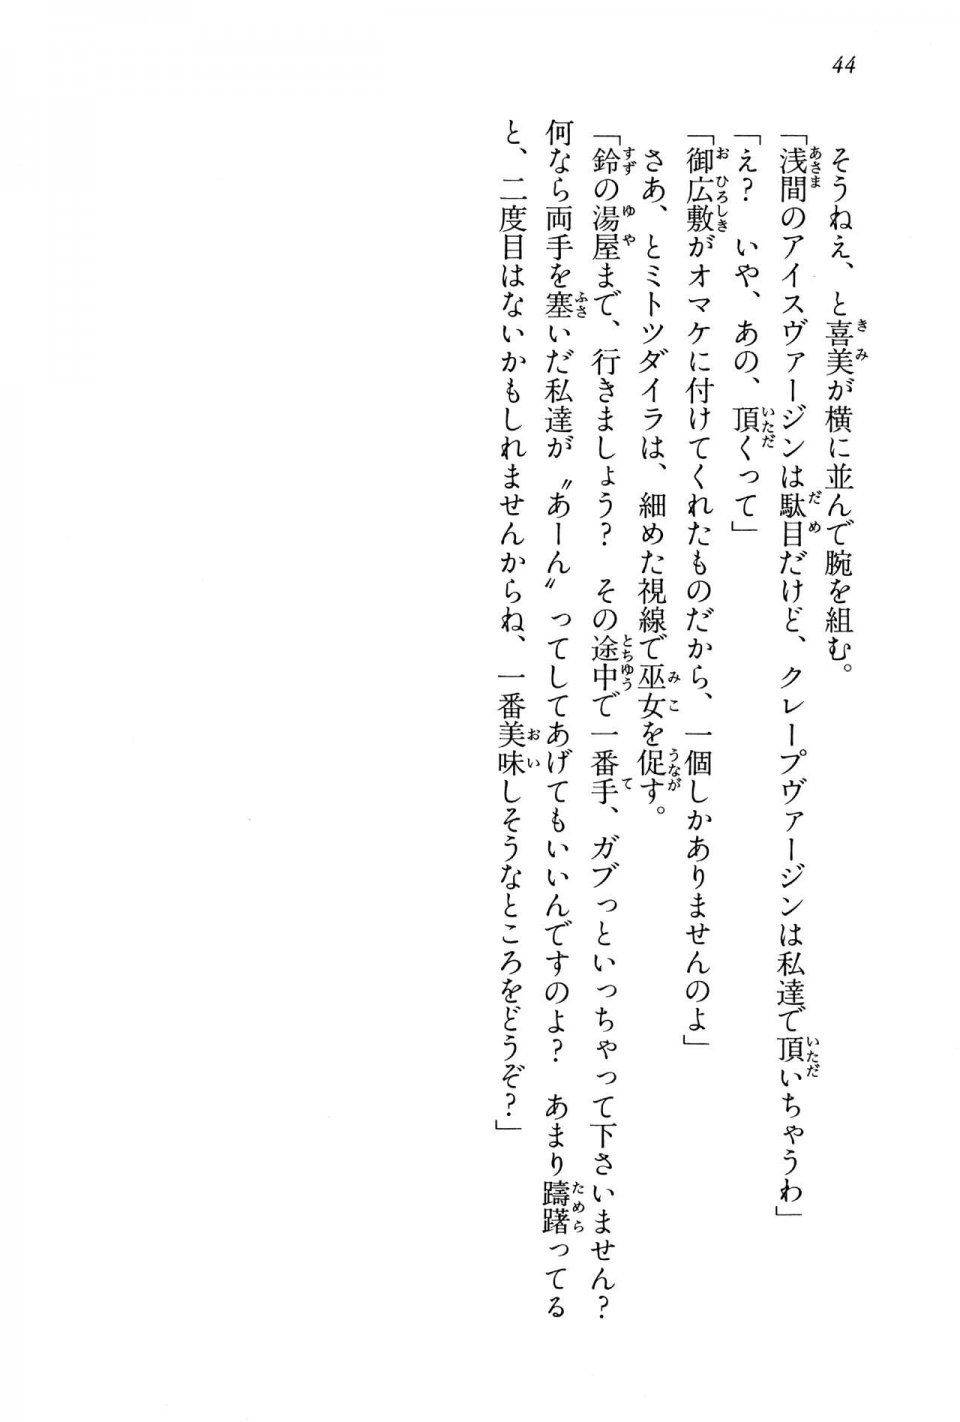 44
そうねえ、と喜美が横に並んで腕を組む。
「浅間のアイスヴァージンは駄目だけど、クレープヴァージンは私達で頂いちゃうわ」
「え？　いや、あの、頂くって」
「御広敷がオマケに付けてくれたものだから、一個しかありませんのよ」
さあ、とミトツダイラは、細めた視線で巫女を促す。
「鈴の湯屋まで、行きましょう？　その途中で一番手、ガブっといっちゃって下さいません？
何なら両手を塞いだ私達が〝あーん〟ってしてあげてもいいんですのよ？　あまり躊躇ってる
と、二度目はないかもしれませんからね、一番美味しそうなところをどうぞ？」